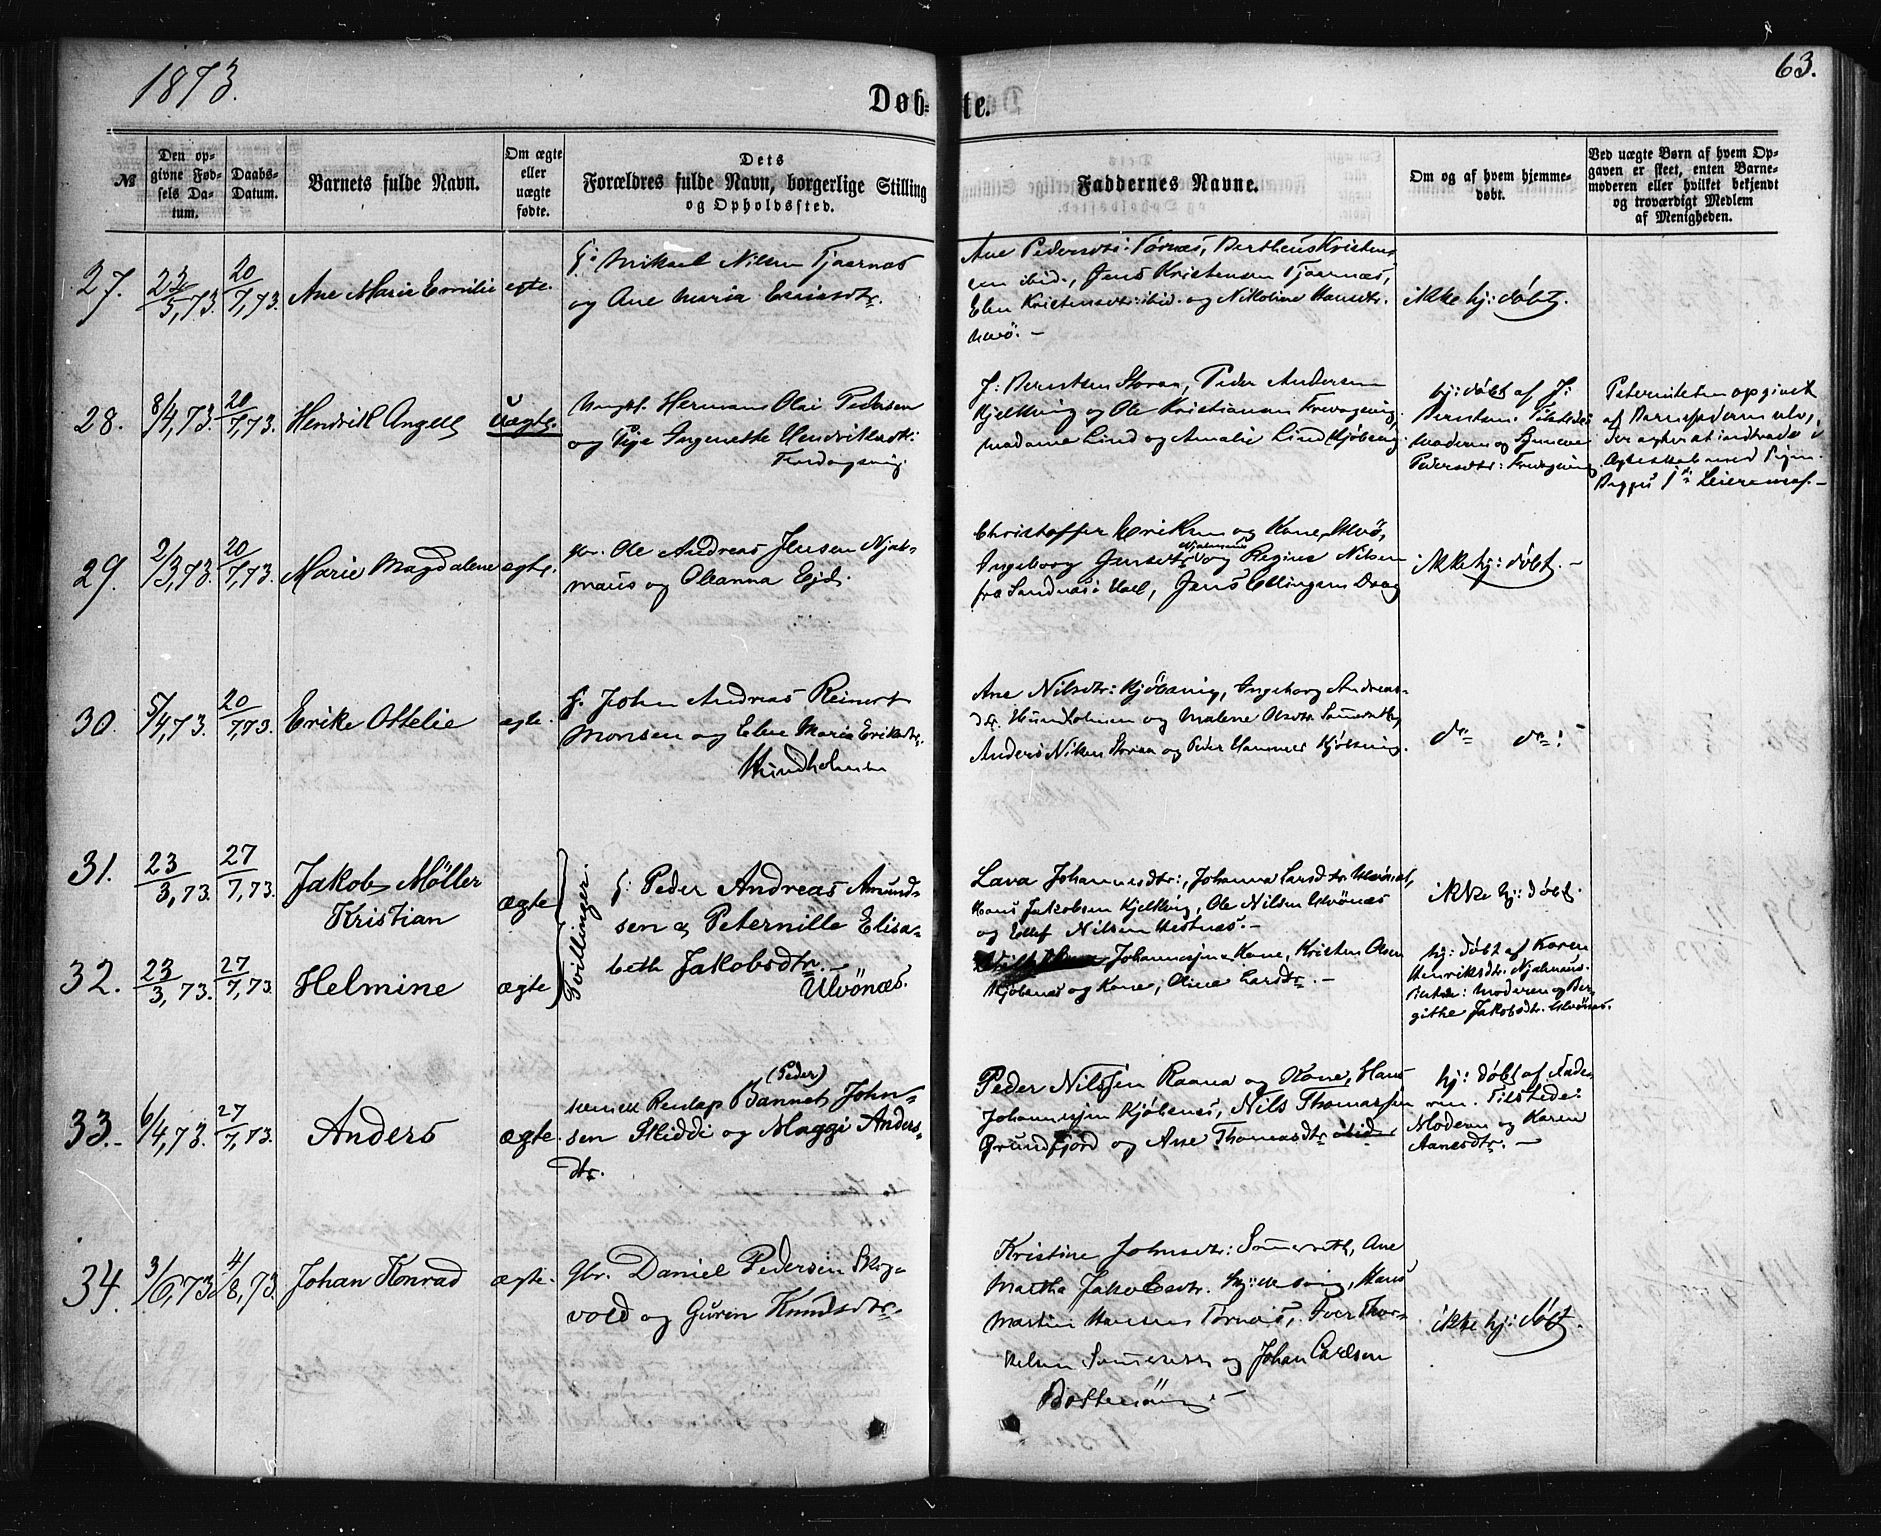 1873.
63.
Døb-
te.
№
Den op-
givne Fød-
sels Da-
tum.
Daabs-
Datum.
Barnets fulde Navn.
Om ægte
eller
uægte
fødte.
Dets
Forældres fulde Navn, borgerlige Stilling
og Opholdssted.
Faddernes Navne.
Om og af hvem hjemme-
døbt.
Ved uægte Børn af hvem Op-
gaven er skeet, enten Barne-
moderen eller hvilket bekjendt
og troværdigt Medlem
af Menigheden.
27.
23/5,73.
20/7,73.
Ane Marie Emilie
egte.
Mikael Nilsen Tjaarnæs
og Ane Maria
Ane Pedersdtr: Tørnæs, Bertheus Kristen-
sen ibid., Jens Kristensen Tjaarnæs,
Elen Kristensdtr: ibid. og Nikoline Hansdtr.
ikke hj: døbt.
28.
8/4,73.
20/7,73.
Hendrik Angell
Uægte.
Ungk. Hermans Olai Pedersen
og Pige Ingenette Hendriksdtr:
J: Berntsen Storaa, Peder Andersen
og Ole Kristiansen
Madame Lind og Amalie Lind
hj: døbt af J:
Berntsen. Tilstede:
Moderen og
Pedersdtr:
opgivet
af Barnefaderen selv,
der agter at indtræde i
Ægteskab med Pigen.
Begges 1ste Leiermaal. –
29.
2/3,73.
20/7,73.
Marie Magdalene
egte.
gbr. Ole Andreas Jensen Njal-
maus og Oleanna
Christoffer Eriksen og Kone,
Ingeborg og Regine Nilsen
fra Sandnæs i Jens Ellingsen Drag
ikke hj: døbt. –
30.
5/4,73.
20/7,73.
Erike Ottelie
egte.
f. John Andreas Reinert
Monsen og Elen Maria Eriksdtr.
Hundholmen
Ane Nilsdtr: Kjøbsvig, Ingeborg Andreas-
dtr. Hundholmen og Malene Olsdtr.
Anders Nilsen Storaa og Peder Hammer Kjøbsvig.
do do:
31.
23/3,73.
27/7,73.
Jakob Möller
Kristian
ægte
Tvillinger
f: Peder Andreas Amund-
sen og Peternille Elisa-
beth Jakobsdtr.
Ulvönæs.
Lava Johannesdtr:, Johanna Larsdtr.
Hans Jakobsen Kjelkvig, Ole Nilsen Ulvönæs
og Nilsen Hestnæs. –
ikke hj: døbt.
32.
23/3,73.
27/7,73.
Helmine
ægte
Johannesjens Kone, Kristen Olsen
Kjöbsnæs og Kone, Oline Larsdtr. –
hj: døbt af Karen
Henriksdtr. Njalmaus.
Moderen og Ber-
githe Jakobsdtr. Ulvönæs.
33.
6/4,73.
27/7,73.
Anders
ægte.
(Peder)
Bannet John-
sen Skiddi og Maggi Anders-
dtr.
Peder Nilssen Raana og Kone, Hans
Johannesjen Kjöbsnæs, Nils Thomassen
Grundfjord og Ane Thomasdtr
hj: döbt af Fade-
ren. Tilstede:
Moderen og Karen
Aanesdtr. –
34.
3/6,73.
4/8,73.
Johan Konrad
ægte.
Gbr. Daniel Pedersen Skog-
vold og Guren Knudsdtr.
Kristine Johnsdtr: Ane
Martha Jakobsdtr. Hans
Martin Hansen Tørnæs, Iver Thor-
og Johan Carlsen
ikke hj: døbt.